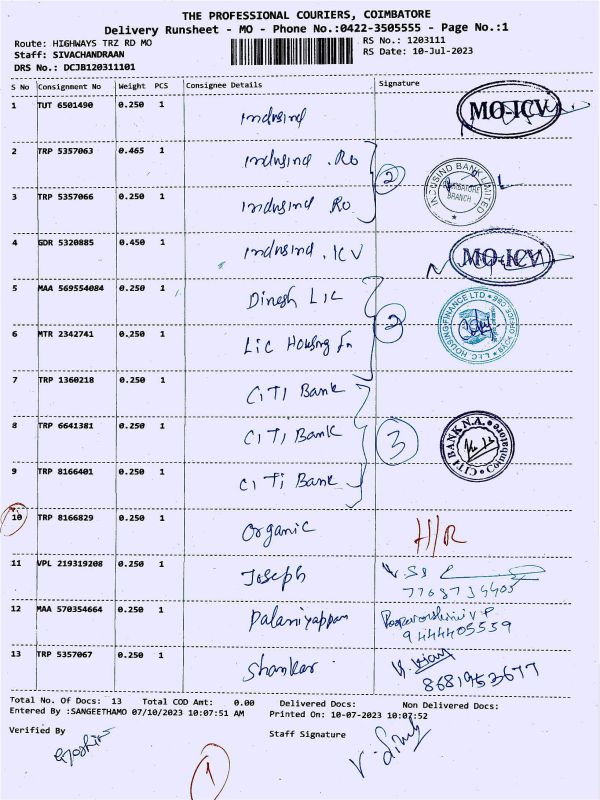 THE PROFESSIONAL COURIERS, COIMBATORE
Delivery Runsheet - MO - Phone No.:0422-3505555 - Page No.:1
Route: HIGHWAYS TRZ RD MO RS No.: 1203111
Staff: SIVACHANDRAAN RS Date: 10-Jul-2023
DRS No.: DCJB120311101
S No Consignment No Weight PCS Consignee Details Signature
1 TUT 6501490 0.250 1 Indusind MO-ICV
2 TRP 5357063 0.465 1 Indusind .Ro
2 INDUSIND BANK LIMITED COIMBATORE BRANCH
3 TRP 5357066 0.250 1 Indusind Ro
4 GDR 5320885 0.450 1 Indusind .ICV MO-ICV
5 MAA 569554084 0.250 1 Dinesh LIC
2 L.I.C. HOUSING FINANCE LTD. BACK OFFICE
6 MTR 2342741 0.250 1 Lic Housing fn
7 TRP 1360218 0.250 1 CITI Bank
8 TRP 6641381 0.250 1 CITI Bank 3 CITI BANK N.A. Coimbatore
9 TRP 8166401 0.250 1 CITI Bank
10 TRP 8166829 0.250 1 Organic H/R
11 VPL 219319208 0.250 1 Joseph
12 MAA 570354664 0.250 1 Palaniyappan
9444405559
13 TRP 5357067 0.250 1 Shankar
8681953677
Total No. Of Docs: 13 Total COD Amt: 0.00 Delivered Docs: Non Delivered Docs:
Entered By :SANGEETHAMO 07/10/2023 10:07:51 AM Printed On: 10-07-2023 10:07:52
Verified By Staff Signature
1